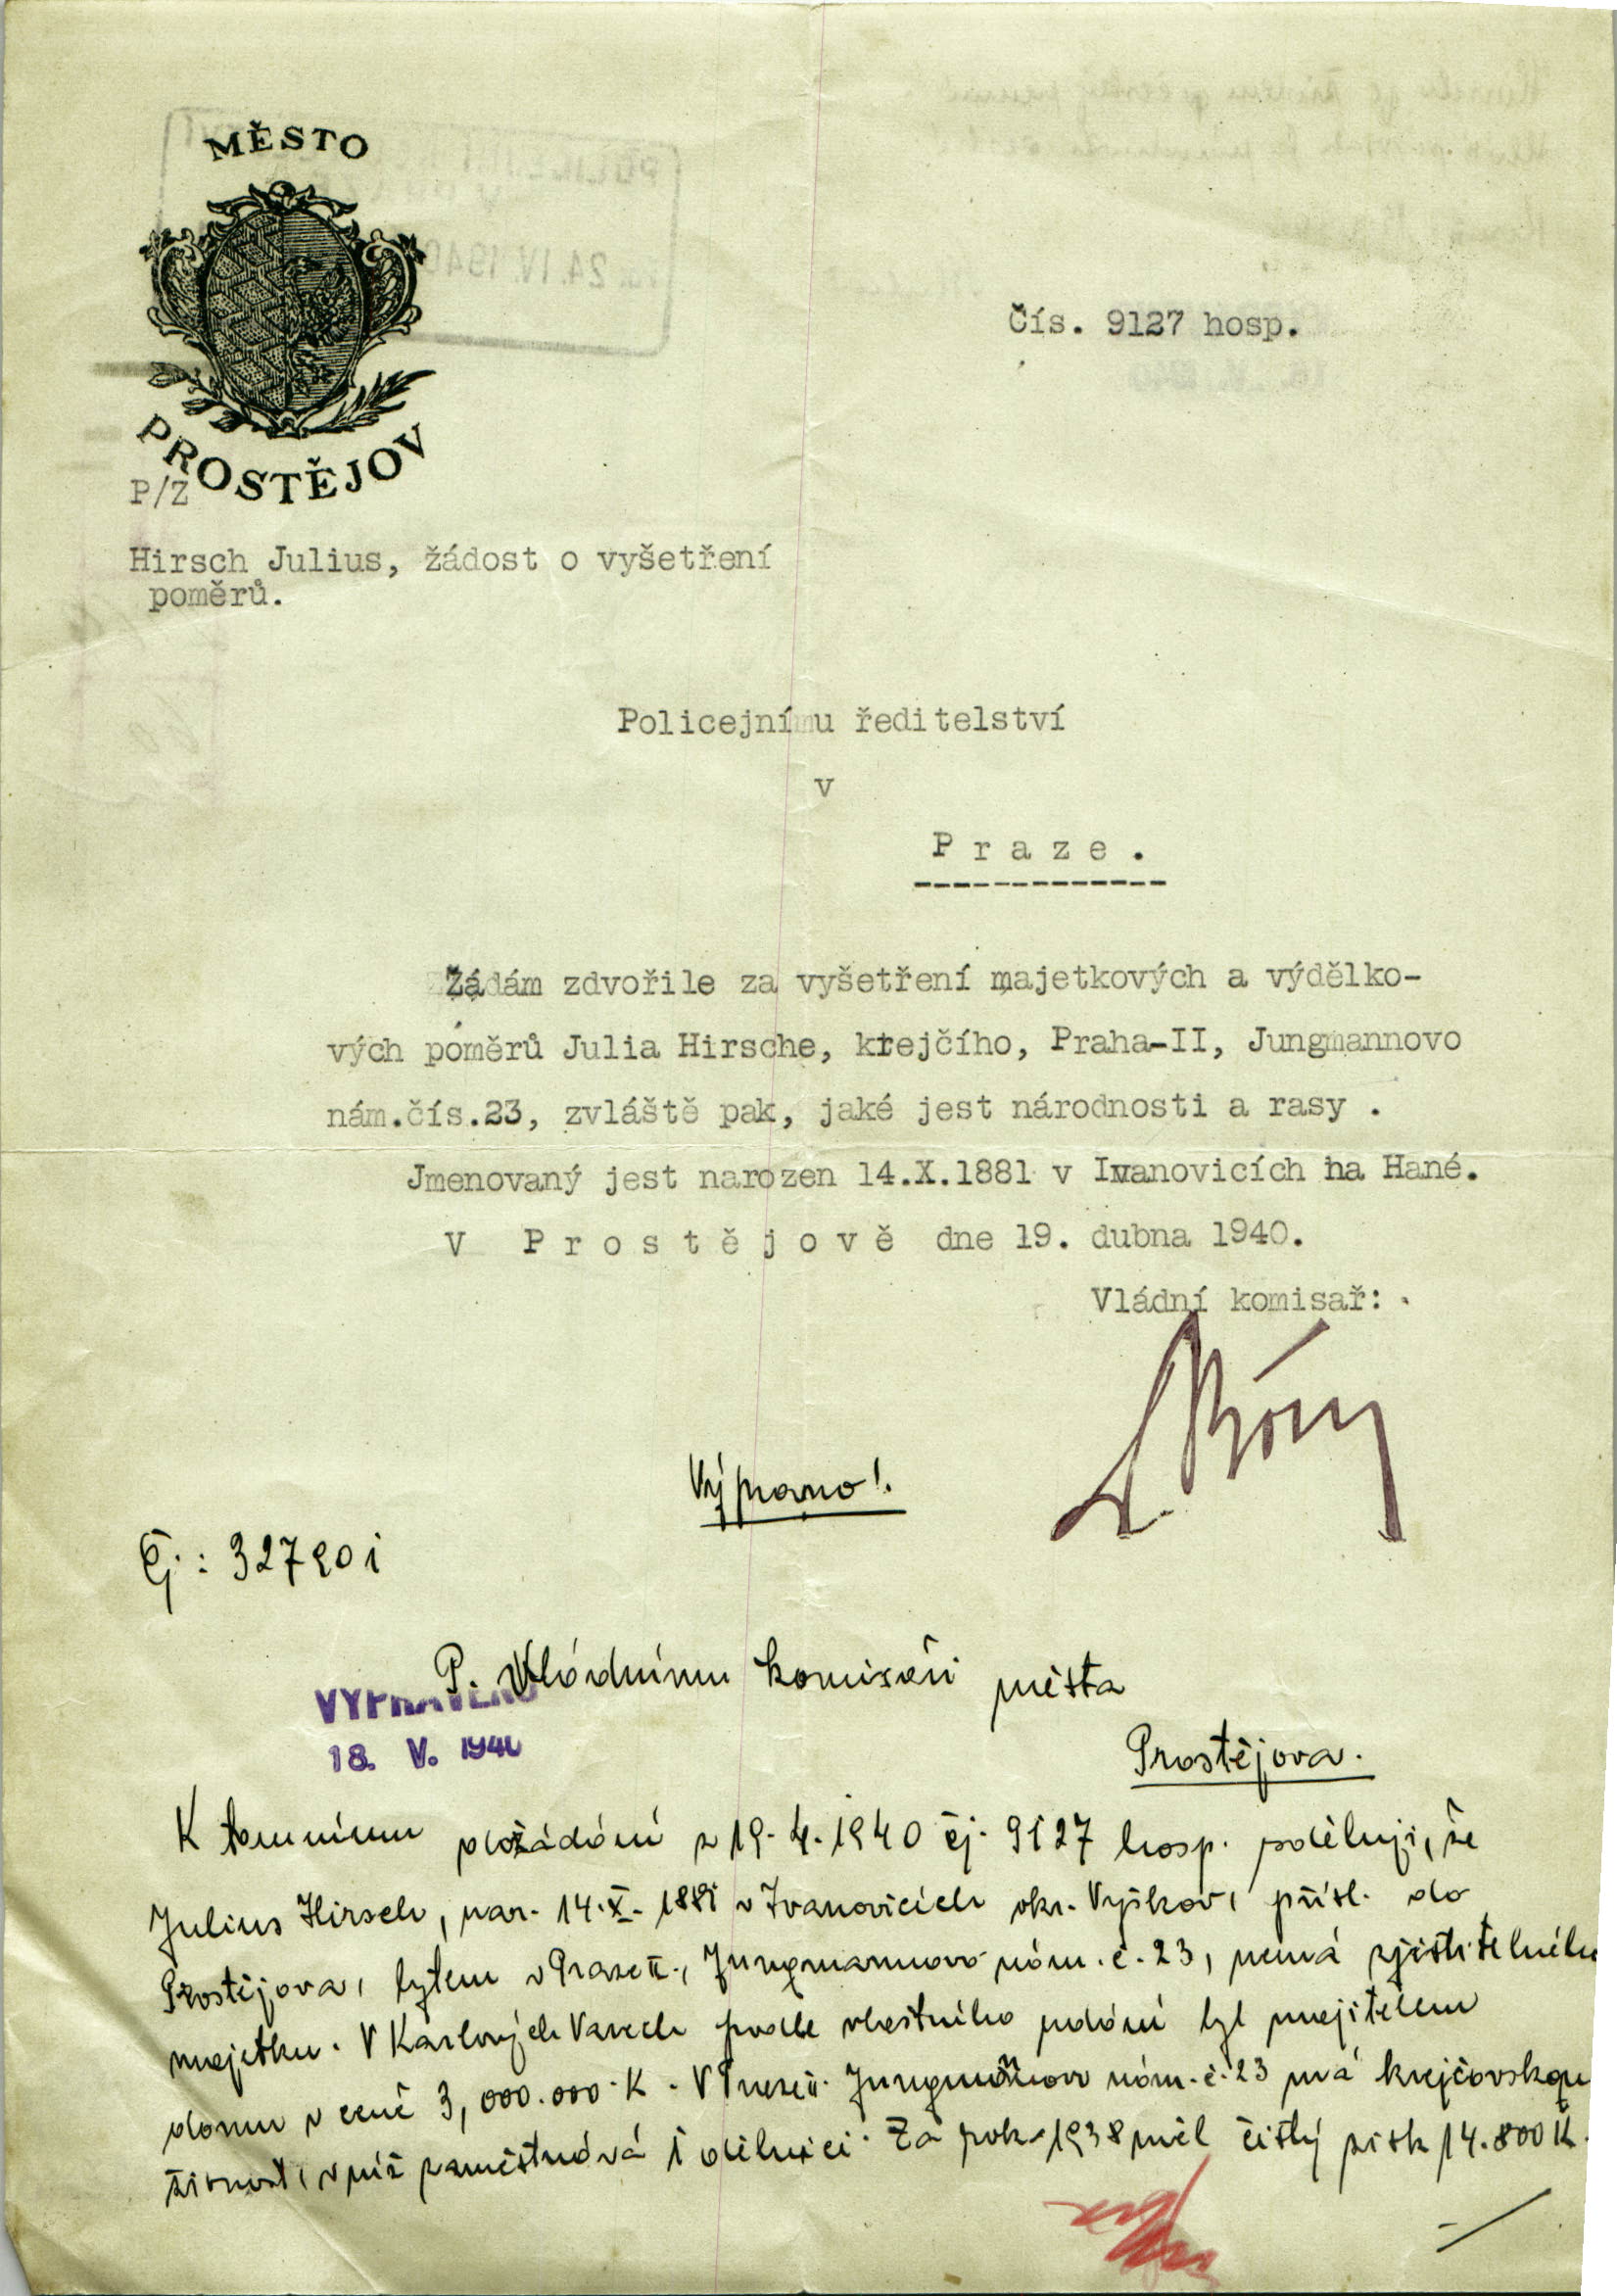 MĚSTO
PROSTĚJOV
P/Z
Čís. 9127 hosp.
Hirsch Julius, žádost o vyšetření
poměrů.
Policejnímu ředitelství
v
Praze.
Žádám zdvořile za vyšetření majetkových a výdělko-
vých poměrů Julia Hirsche, krejčího, Praha-II, Jungmannovo
nám.čís.23, zvláště pak, jaké jest národnosti a rasy .
Jmenovaný jest narozen 14.X.1881 v Ivanovicích na Hané.
V Prostějově dne 19. dubna 1940.
Vládní komisař:
Čj.: 32720 i
P. Vládnímu komisaři města
VYPRAVENO
18. V. 1940
Prostějova.
K tamnímu požádání z 19.4.1940 čj. 9127 hosp. sděluji, že
Julius Hirsch, nar. 14.X.1881 v Ivanovicích okr. Vyškov, přísl. do
Prostějova, bytem v Praze II., Jungmannovo nám. č. 23, nemá zjistitelného
majetku. V Karlových Varech podle vlastního udání byl majitelem
domu v ceně 3,000.000 K. V Praze II. Jungmannovo nám. č. 23 má krejčovskou
živnost, v níž zaměstnává 1 dělnici. Za rok 1938 měl čistý zisk 14.800 K.